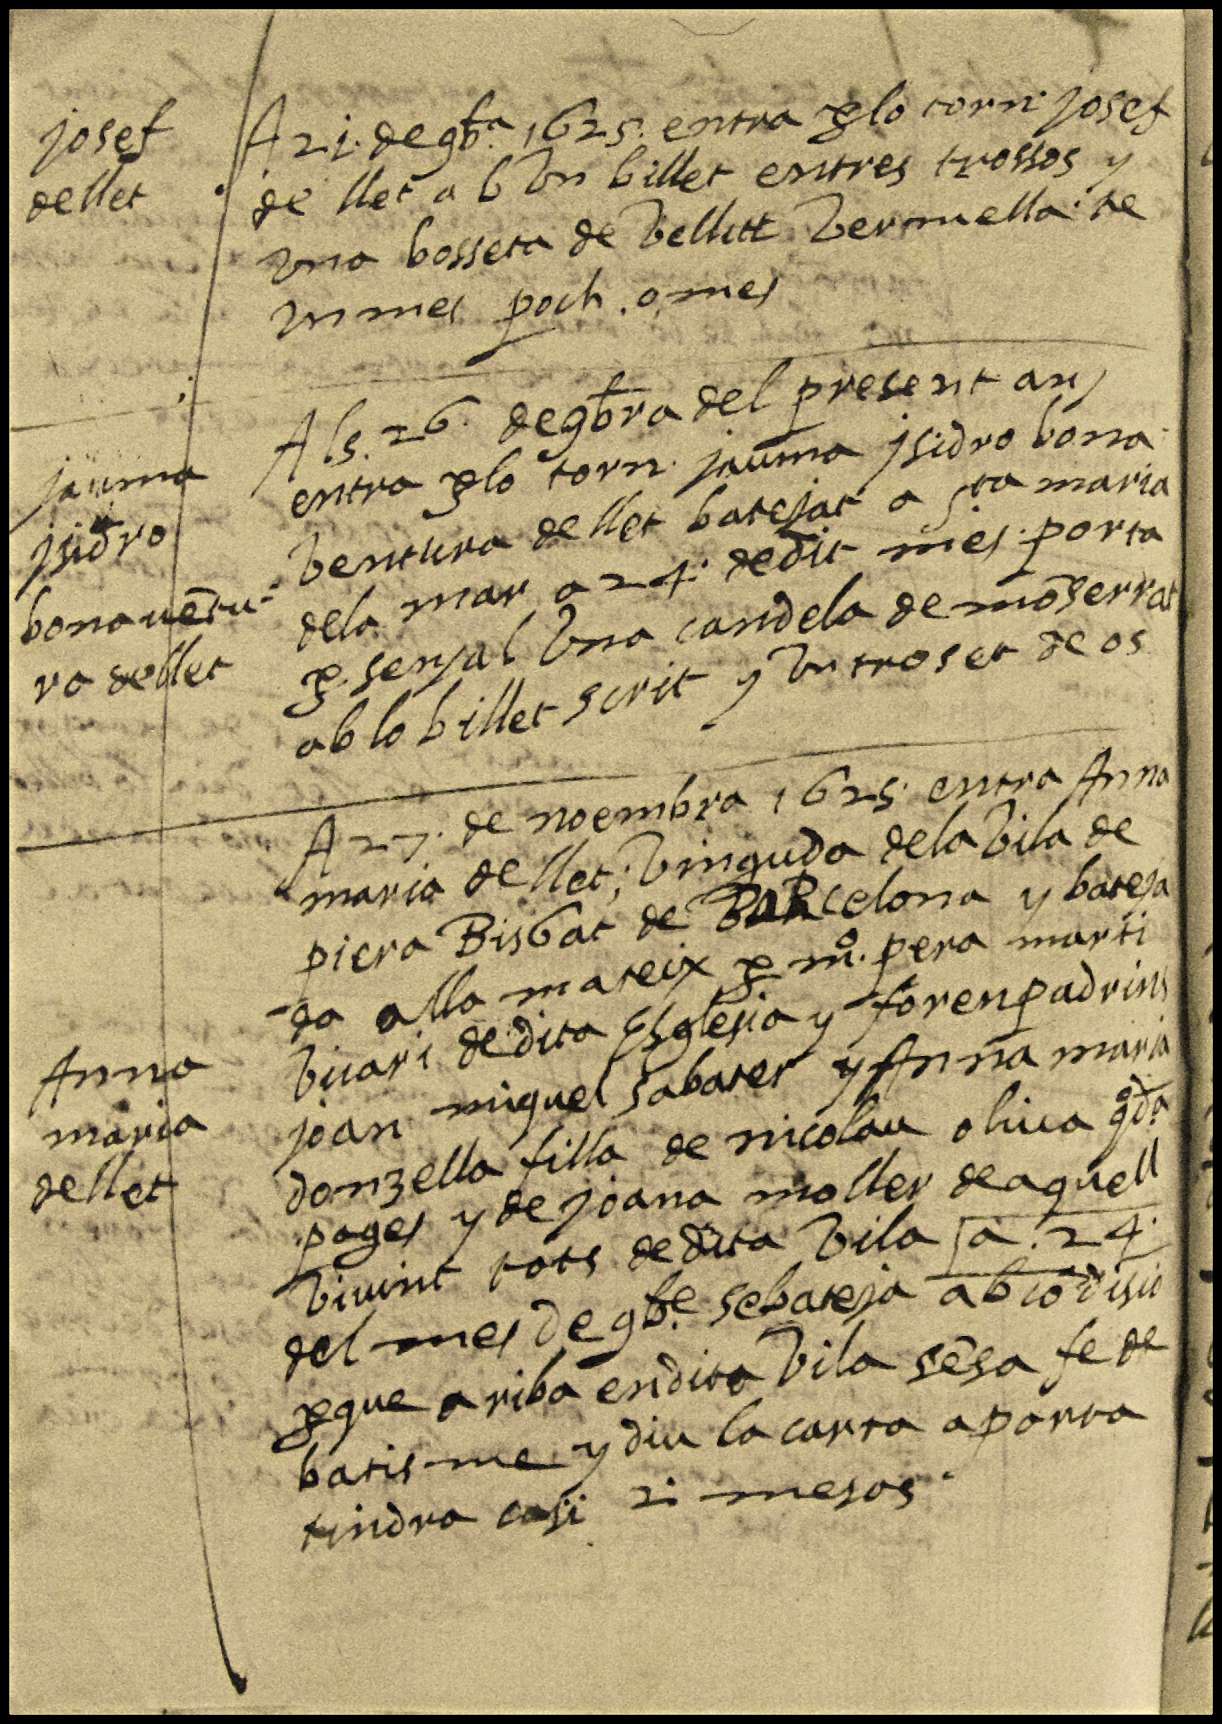 josef
de llet
A 21. de 9bra. 1625. entra p lo torn. josef
de llet ab Vn billet en tres trossos y
Vna bosseta de Vellutt Vermella. te
Vn mes poch. o mes
jauma
jsidro
bonauētu-
ra de llet
Als. 26. de 9bra del present any
entra p lo torn. jauma jsidro bona
Ventura de llet batejat a Sta maria
dela mar a 24. de dit mes. porta
p. senyal Vna candela de mōserrat
ab lo billet scrit y Vn troset de os
Anna
maria
de llet
A 27. de noembra 1625. entra Anna
maria de llet; Vinguda dela Vila de
piera Bisbat de BARcelona y bateja
da alla mateix p mo. pera marti
Vicari de dita Esglesia y foren padrins
joan miquel sabater y Anna maria
donzella filla de nicolau oliua qo. da.
pages y de joana moller de aquell
Viuint tots de dita Vila a. 24.
del mes de 9bre. se bateja ab cōdisio
p que ariba en dita Vila sēsa fe de
batis me y diu la carta a porta
tindra casi 2. mesos.